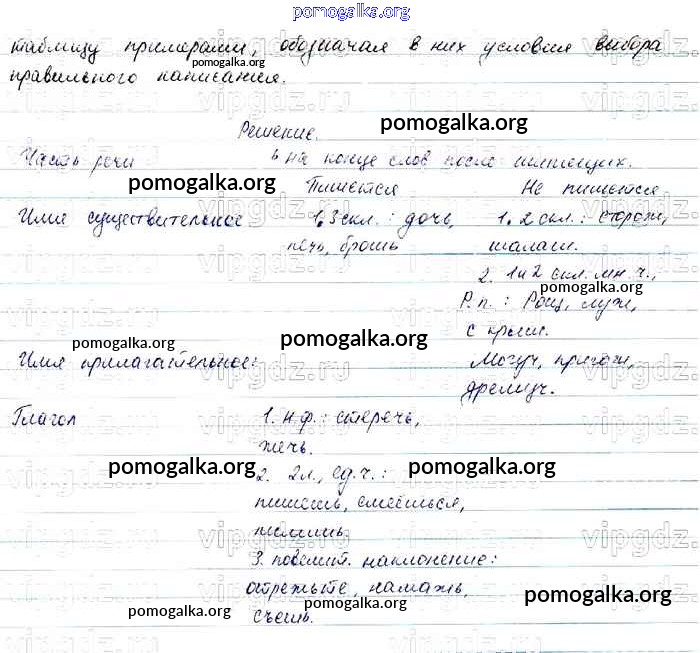 pomogalka.org
таблицу примерами, обозначая в них условия выбора
pomogalka.org
правильного написания.
Решение. pomogalka.org
Часть речи ь на конце слов после шипящих.
pomogalka.org Пишется Не пишется
Имя существительное 1. 3 скл.: дочь, 1. 2 скл.: сторож,
печь, брошь шалаш.
2. 1 и 2 скл. мн. ч.,
pomogalka.org
Р.п.: Рощ, луж,
pomogalka.org pomogalka.org с крыш.
Имя прилагательное: Могуч, пригож,
дремуч.
Глагол 1. н.ф.: стеречь,
жечь.
pomogalka.org 2. 2л., ед.ч.: pomogalka.org
пишешь, смеёшься,
vipgdz.ru
3. повелит. наклонение:
отрежьте, намажь,
pomogalka.org pomogalka.org pomogalka.org
съешь.